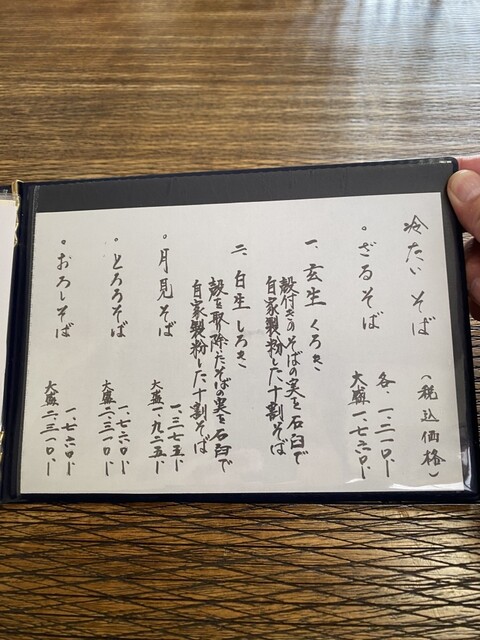 冷たい そば （税込価格）
。ざるそば 各、一、二一〇、一
大盛 一、七六〇、一
一、玄生 くろき
殻付きのそばの実を石臼で
自家製粉した十割そば
二、白生 しろき
殻を取除たそばの実を石臼で
自家製粉した十割そば
。月見そば 一、三七五、一
大盛 一、九二五、一
。とろろそば 一、七六〇、一
大盛 二、三一〇、一
。おろしそば 一、七六〇、一
大盛 二、三一〇、一